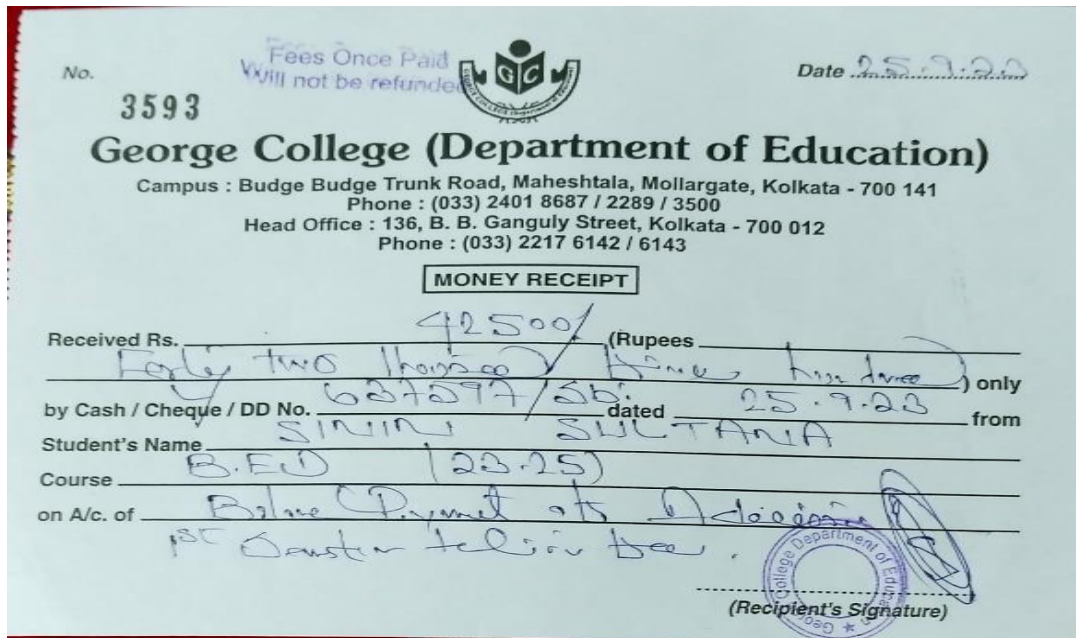 Fees Once Paid
Will not be refunded
No. 3593
GC
Date 25.9.23
George College (Department of Education)
Campus : Budge Budge Trunk Road, Maheshtala, Mollargate, Kolkata - 700 141
Phone : (033) 2401 8687 / 2289 / 3500
Head Office : 136, B. B. Ganguly Street, Kolkata - 700 012
Phone : (033) 2217 6142 / 6143
MONEY RECEIPT
Received Rs. 42500/ (Rupees
Forty two thousand hundred ) only
by Cash / Cheque / DD No. 637597/SBI dated 25.9.23 from
Student's Name SININ SULTANA
Course B.ED (23-25)
on A/c. of Admission
1ST
George College Department of Education
(Recipient's Signature)